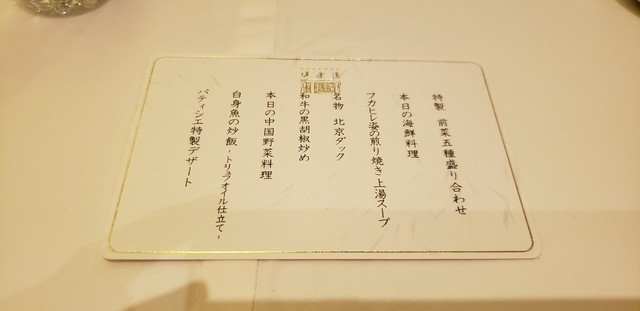 特製　前菜五種盛り合わせ
本日の海鮮料理
フカヒレ姿の煎り焼き上湯スープ
名物　北京ダック
和牛の黒胡椒炒め
本日の中国野菜料理
白身魚の炒飯 - トリュフオイル仕立て -
パティシエ特製デザート